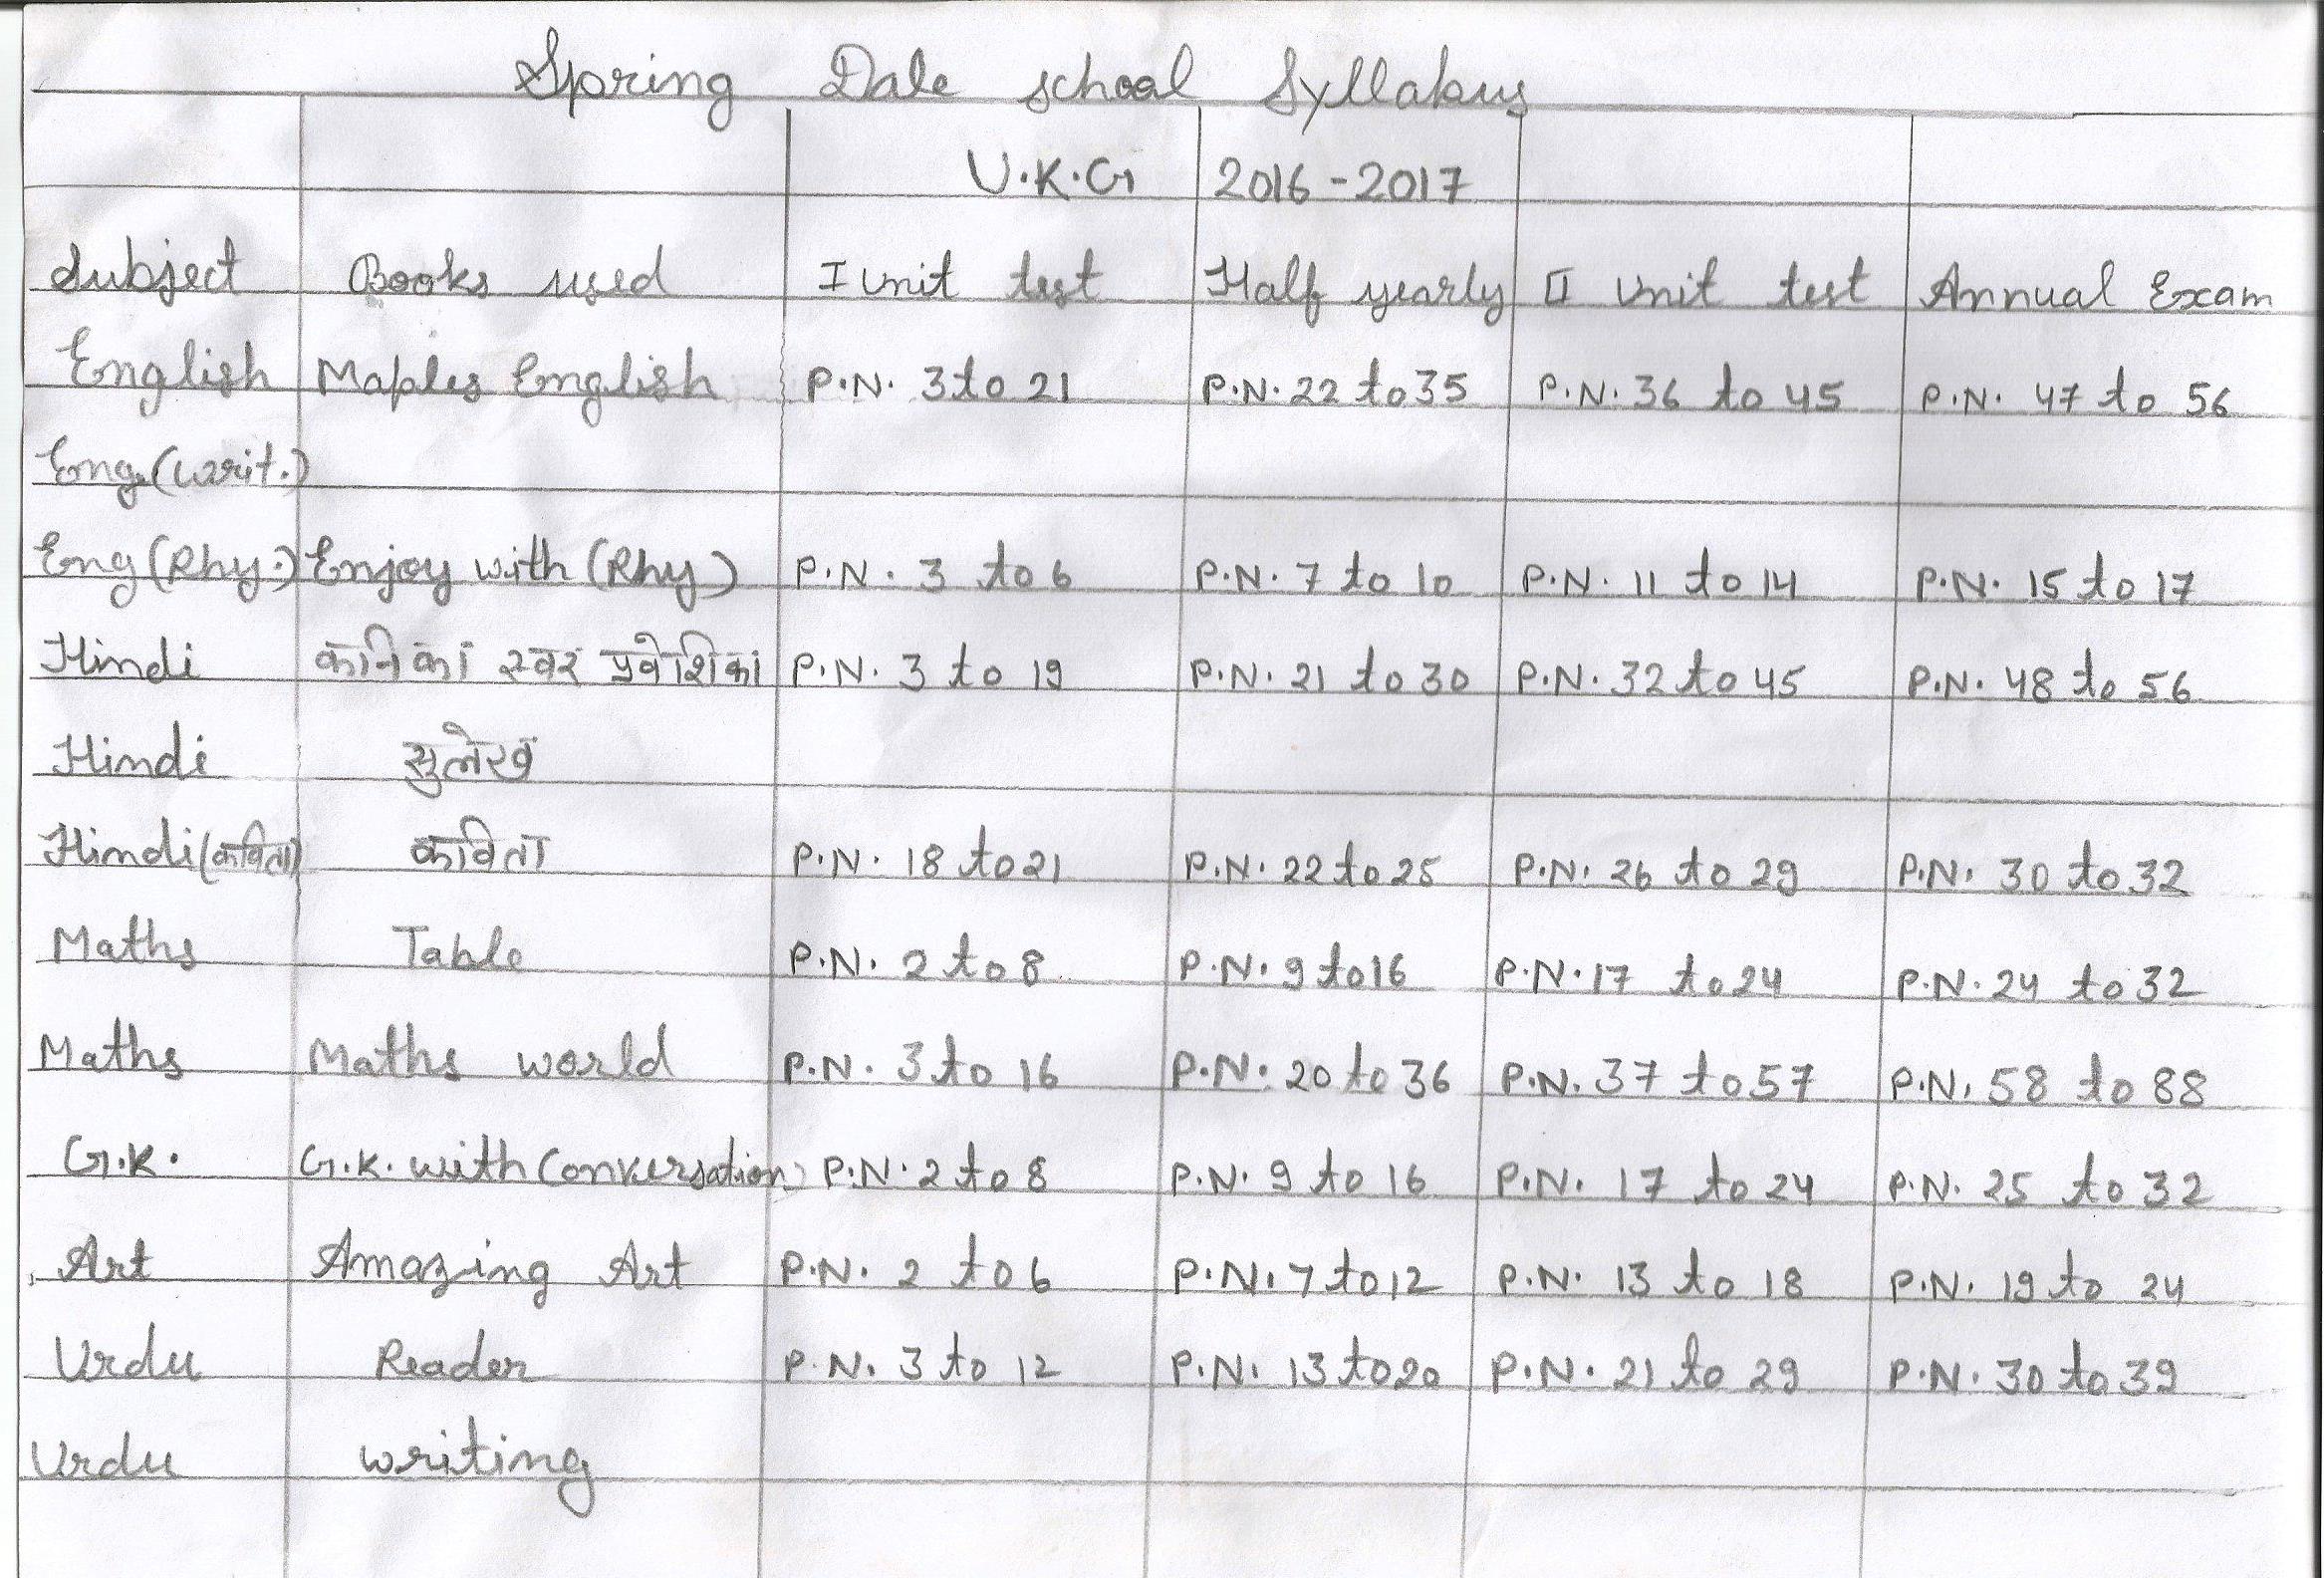 Spring Dale school Syllabus
U.K.G 2016-2017
Subject Books used I Unit test Half yearly II Unit test Annual Exam
English Maples English P.N. 3 to 21 P.N. 22 to 35 P.N. 36 to 45 P.N. 47 to 56
Eng.(Writ.)
Eng (Rhy.) Enjoy with (Rhy) P.N. 3 to 6 P.N. 7 to 10 P.N. 11 to 14 P.N. 15 to 17
Hindi कनिका स्वर प्रवेशिका P.N. 3 to 19 P.N. 21 to 30 P.N. 32 to 45 P.N. 48 to 56
Hindi सुलेख
Hindi (कविता) कविता P.N. 18 to 21 P.N. 22 to 25 P.N. 26 to 29 P.N. 30 to 32
Maths Table P.N. 2 to 8 P.N. 9 to 16 P.N. 17 to 24 P.N. 24 to 32
Maths Maths world P.N. 3 to 16 P.N. 20 to 36 P.N. 37 to 57 P.N. 58 to 88
G.K. G.K. with Conversation P.N. 2 to 8 P.N. 9 to 16 P.N. 17 to 24 P.N. 25 to 32
Art Amazing Art P.N. 2 to 6 P.N. 7 to 12 P.N. 13 to 18 P.N. 19 to 24
Urdu Reader P.N. 3 to 12 P.N. 13 to 20 P.N. 21 to 29 P.N. 30 to 39
Urdu writing